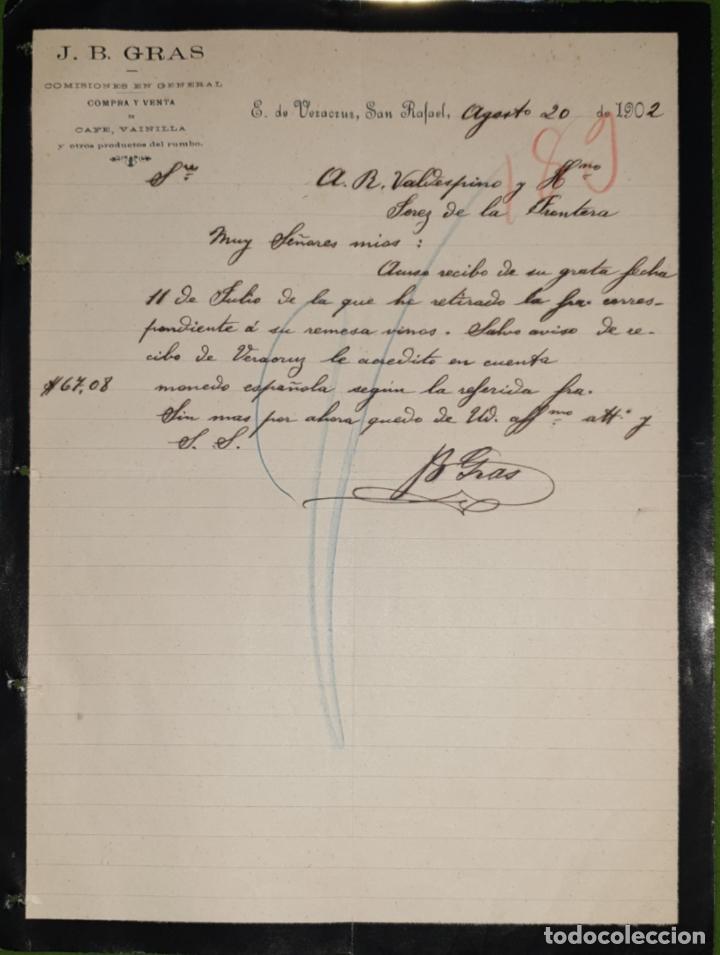 J. B. GRAS
COMISIONES EN GENERAL
COMPRA Y VENTA
DE
CAFE, VAINILLA
y otros productos del rumbo.
E. de Veracruz, San Rafael, Agosto 20 de 1902
189
Sres
A. R. Valdespino y Hmno
Jerez de la Frontera
Muy Señores mios:
Acuso recibo de su grata fecha
11 de Julio de la que he retirado la fra. corres-
pondiente á su remesa vinos. Salvo aviso de re-
cibo de Veracruz le acredito en cuenta
$67,08 monedo española según la referida fra.
Sin mas por ahora quedo de Ud. affmo att.o y
S. S.
JB Gras
todocoleccion
todocoleccion.net